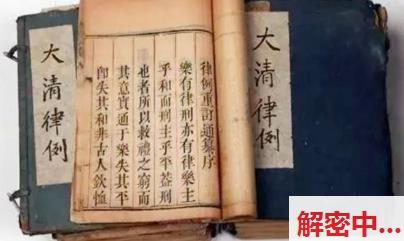 大清律例
律例重訂通纂序
樂有律刑亦有律樂主
乎和而刑主乎平蓋刑
也者所以救禮之窮而
其意實通于樂失其平
即失其和非古人欽恤
大清律例
解密中...